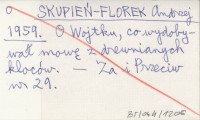 SKUPIEŃ-FLOREK Andrzej
1959. O Wojtku, co wydoby-
wał mowę z drewnianych
kloców. — Za i Przeciw
nr 29.